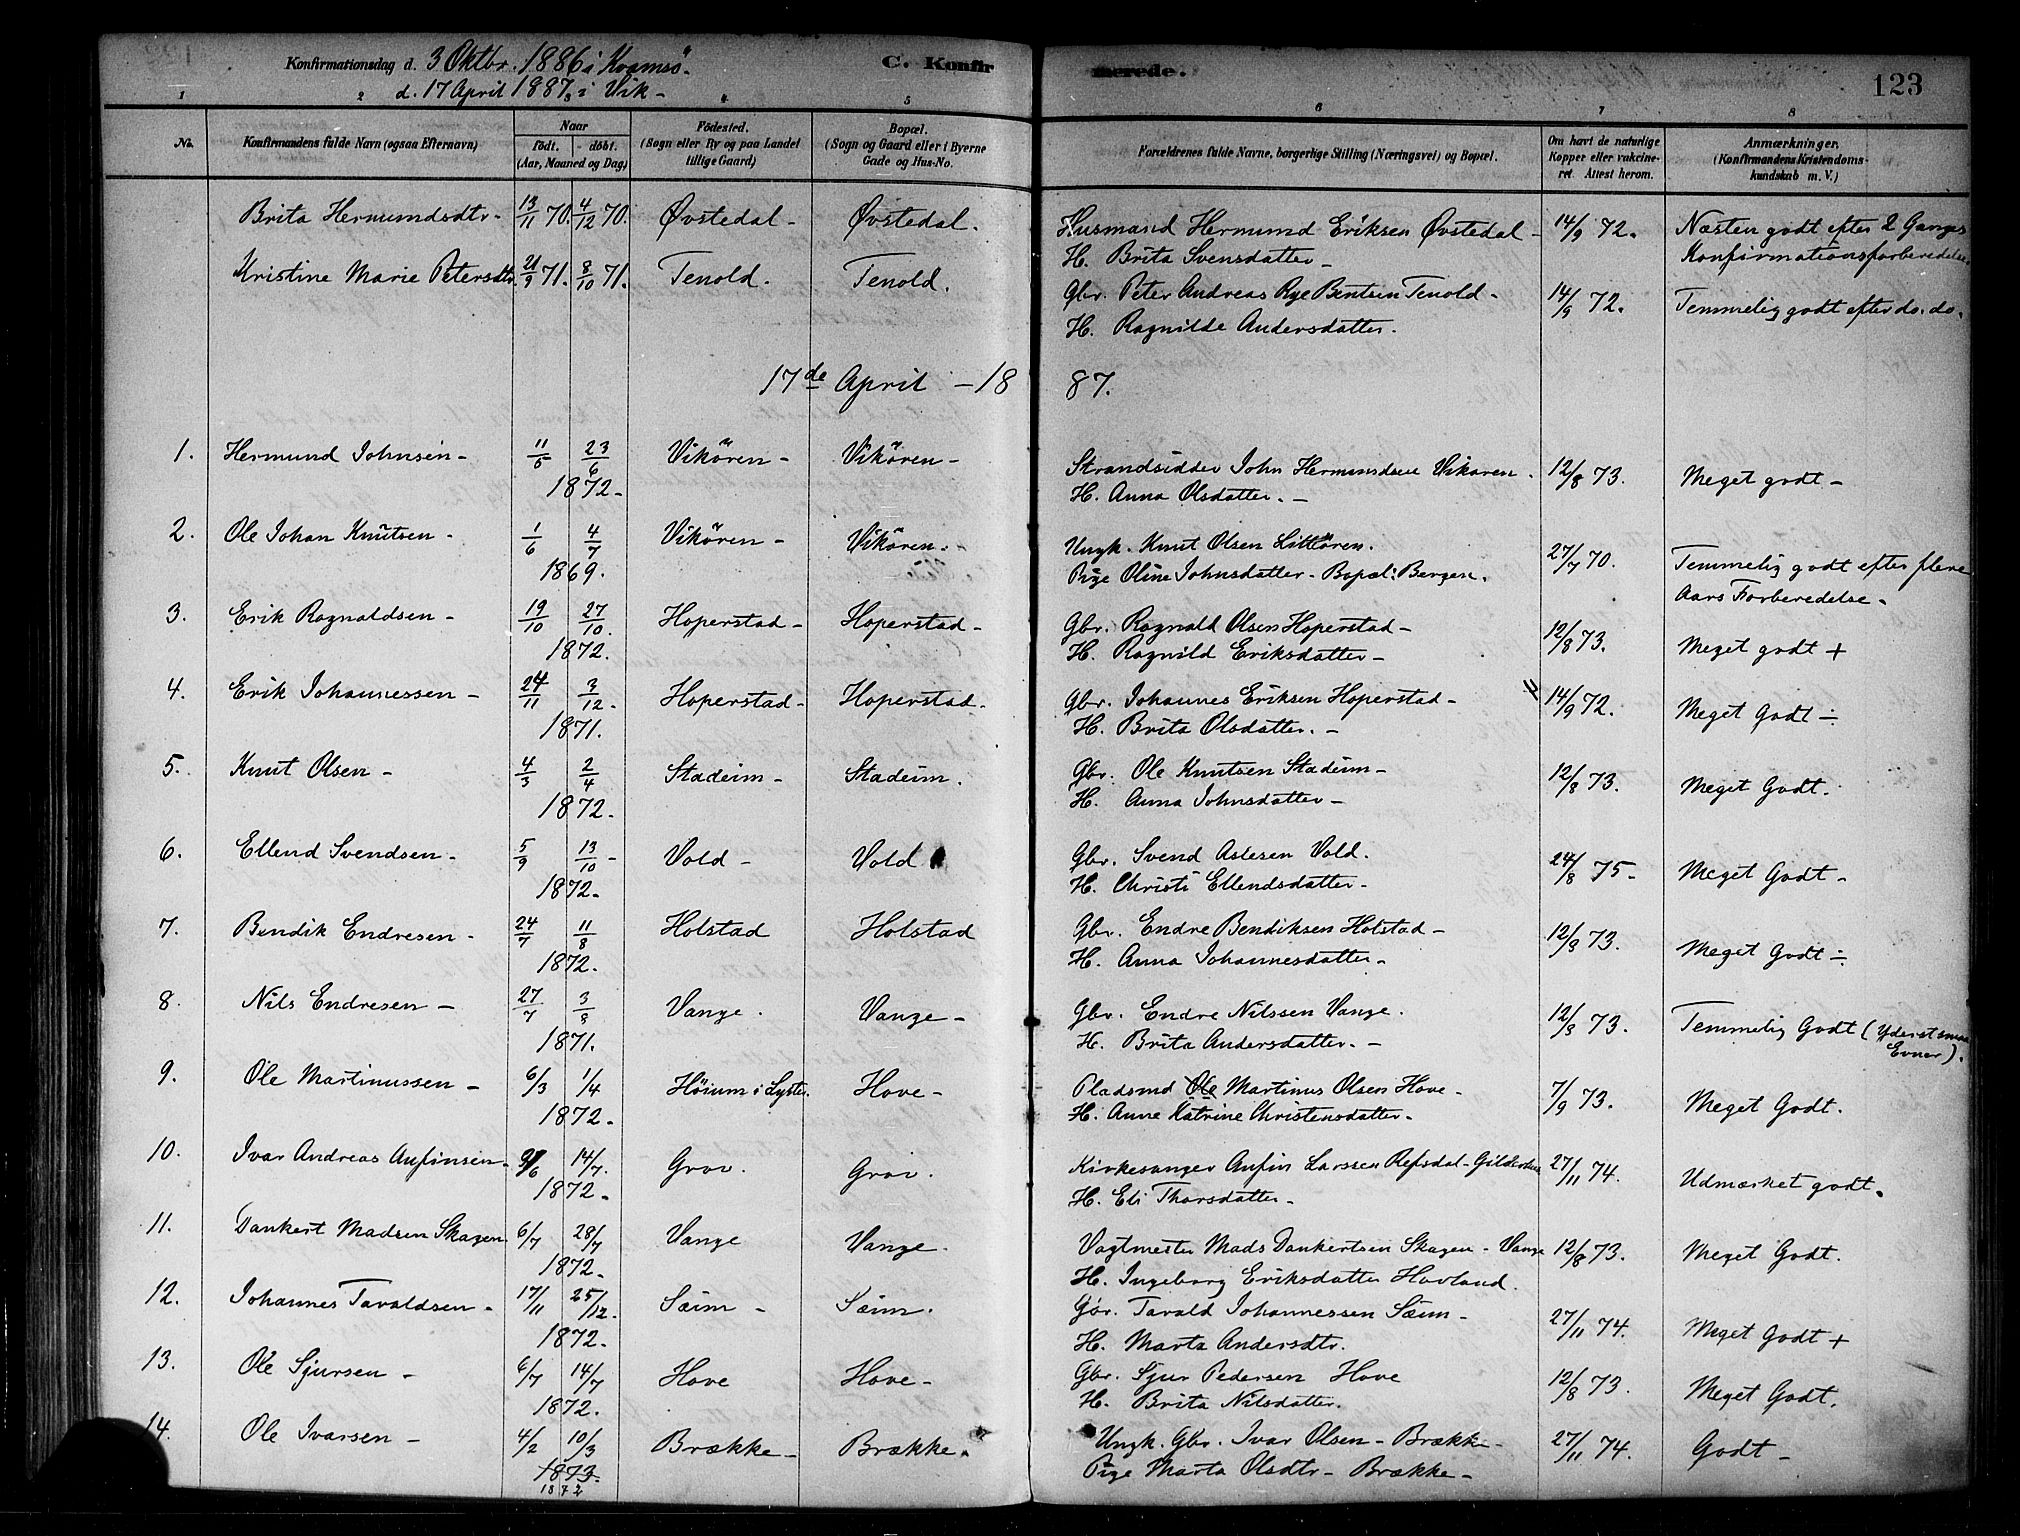 Konfirmationsdag d. 3 Oktbr. 1886 i Kvamsö. C. Konfirmerede. 123
d. 17 April 1887 i Vik -
1 2 3 4 5 6 7 8
No. Konfirmandens fulde Navn (ogsaa Efternavn) Naar født. - døbt. (Aar, Maaned og Dag) Fødested. (Sogn eller By og paa Landet tillige Gaard) Bopæl. (Sogn og Gaard eller i Byerne Gade og Hus-No. Forældrenes fulde Navne, borgerlige Stilling (Næringsvei) og Bopæl. Om havt de naturlige Kopper eller vakcineret. Attest herom. Anmærkninger. (Konfirmandens Kristendomskundskab m. V.)
Brita Hermundsdtr. 13/11 70. 4/12 70. Øvstedal - Øvstedal. Husmand Hermund Eriksen Øvstedal - 14/9 72. Næsten godt efter 2 Ganges
H. Brita Svensdatter - Konfirmationsforberedelse.
Kristine Marie Petersdtr. 21/9 71. 8/10 71. Tenold. Tenold. Gbr. Peter Andreas Rye Bentsen Tenold - 14/9 72. Temmelig godt efter do. do.
H. Ragnilde Andersdatter.
17de April - 1887.
1. Hermund Johnsen - 11/5 23/6 Vikören - Vikören - Strandsidder John Hermundsen Vikøren. 12/8 73. Meget godt -
1872. H. Anna Olsdatter. -
2. Ole Johan Knutsen - 1/6 4/7 Vikören - Vikören. - Ungk. Knut Olsen Litleören. 27/7 70. Temmelig godt efter flere
1869. Pige Oline Johnsdatter - Bopæl: Bergen. Aars Forberedelse.
3. Erik Ragnaldsen - 19/10 27/10. Hoperstad - Hoperstad - Gbr. Ragnald Olsen Hoperstad - 12/8 73. Meget godt +
1872. H. Ragnild Eriksdatter -
4. Erik Johannessen - 24/11 3/12. Hoperstad - Hoperstad. Gbr. Johannes Eriksen Hoperstad - 14/9 72. Meget Godt ÷
1871. H. Brita Olsdatter. -
5. Knut Olsen - 4/3 2/4 Stadeim - Stadeim. Gbr. Ole Knutsen Stadeim - 12/8 73. Meget Godt.
1872. H. Anna Johnsdatter -
6. Ellend Svendsen - 5/9 13/10 - Vold - Vold Gbr. Svend Aslesen Vold. 24/8 75 - Meget Godt -
1872. H. Christi Ellendsdatter -
7. Bendik Endresen - 24/7 11/8 Holstad Holstad Gbr. Endre Bendiksen Holstad - 12/8 73. Meget Godt ÷
1872. H. Anna Johannesdatter -
8. Nils Endresen - 27/7 3/9 Vange. Vange - Gbr. Endre Nilssen Vange. 12/8 73. Temmelig Godt (Yderst smaa
1871. H. Brita Andersdatter. - Evner).
9. Ole Martinussen - 6/3 1/4 Höium i Lyster. Hove - Pladsmd Ole Martinus Olsen Hove - 7/9 73. Meget Godt.
1872. H. Anne Katrine Christensdatter.
10. Ivar Andreas Anfinsen 14/7. Grov. Grov. Kirkesanger Anfin Larssen Refsdal - 27/11 74. Udmærket godt.
1872 - H. Eli Thorsdatter -
11. Dankert Madsen Skagen. 6/7 28/7 Vange Vange. Vagtmester Mads Dankertsen Skagen - Vange 12/8 73. Meget Godt.
1872. H. Ingeborg Eriksdatter Hovland.
12. Johannes Tavaldsen - 17/11 25/12. Sæim - Sæim. Gbr. Tavald Johannessen Sæim - 27/11 74. Meget Godt +
1872. H. Marta Andersdtr.
13. Ole Sjursen - 6/7 14/7 Hove Hove - Gbr. Sjur Pedersen Hove 12/8 73. Meget Godt.
1872. H. Brita Nilsdatter.
14. Ole Ivarsen - 4/2 10/3 Brække - Brække. Ungk. Gbr. Ivar Olsen - Brække - 27/11 74. Godt -
1873. Pige Marta Olsdtr - Brække -
1872